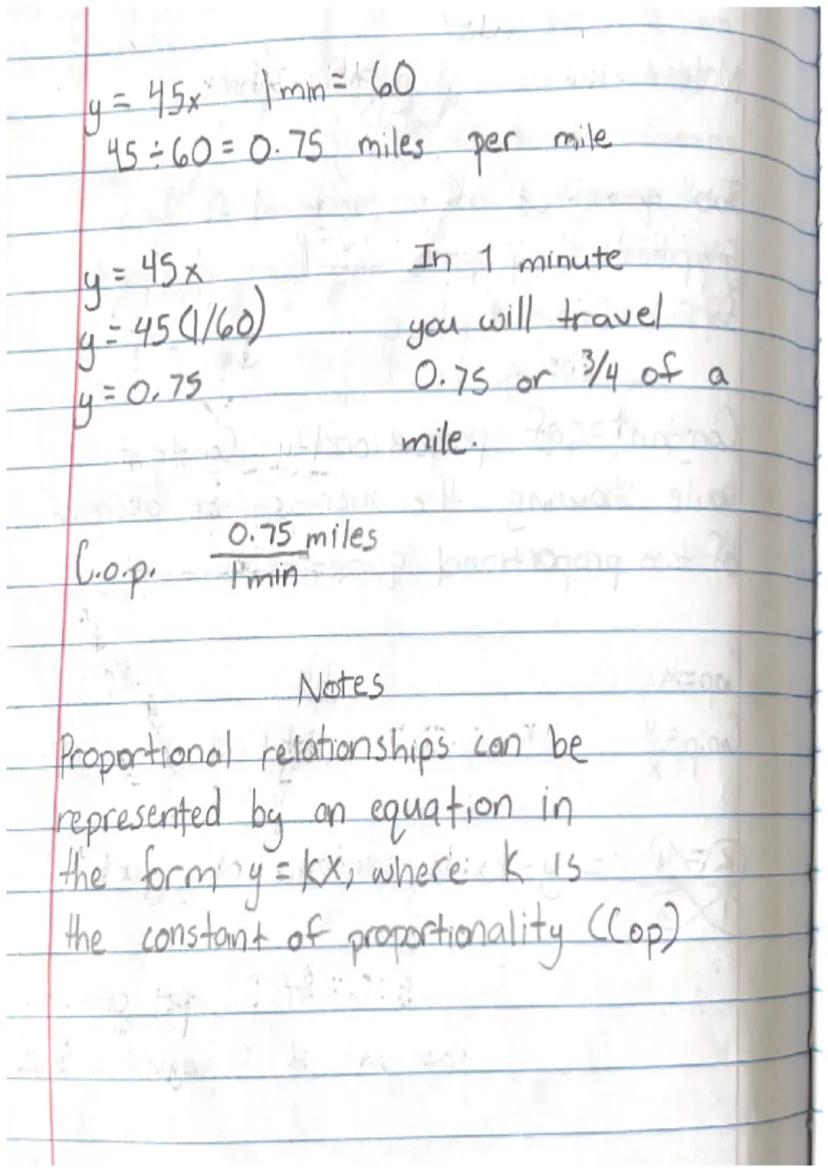 y = 45x 1 min = 60
45 ÷ 60 = 0.75 miles per mile
y = 45x
y = 45 (1/60)
y = 0.75
In 1 minute
you will travel
0.75 or 3/4 of a
mile.
C.o.p. 0.75 miles
1 min
Notes
Proportional relationships can be
represented by an equation in
the form y = kx, where k is
the constant of proportionality (Cop)